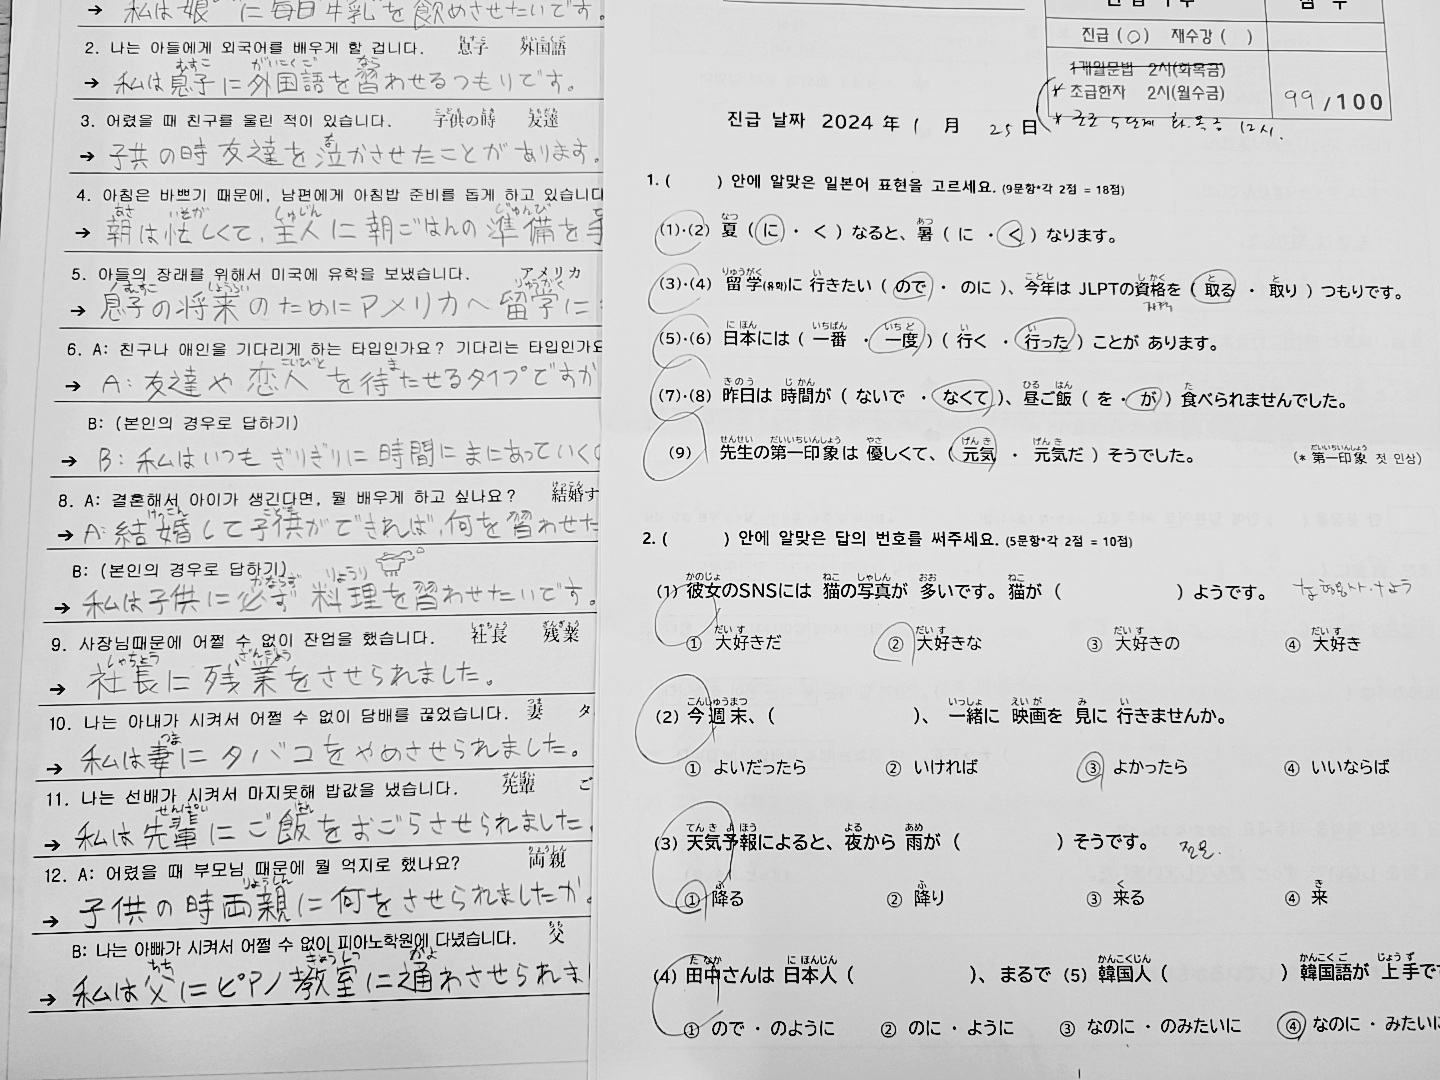 → 私は娘に毎日牛乳を飲めさせたいです。
2. 나는 아들에게 외국어를 배우게 할 겁니다. 息子 外国語
→ 私は息子に外国語を習わせるつもりです。
3. 어렸을 때 친구를 울린 적이 있습니다. 子供の時 友達
→ 子供の時友達を泣かさせたことがあります。
4. 아침은 바쁘기 때문에, 남편에게 아침밥 준비를 돕게 하고 있습니다
→ 朝は忙しくて、主人に朝ごはんの準備を手
5. 아들의 장래를 위해서 미국에 유학을 보냈습니다. アメリカ
→ 息子の将来のためにアメリカへ留学に
6. A: 친구나 애인을 기다리게 하는 타입인가요? 기다리는 타입인가요
→ A: 友達や恋人を待たせるタイプですか
B: (본인의 경우로 답하기)
→ B: 私はいつもぎりぎりに時間にまにあっていくの
8. A: 결혼해서 아이가 생긴다면, 뭘 배우게 하고 싶나요? 結婚す
→ A: 結婚して子供ができれば、何を習わせた
B: (본인의 경우로 답하기)
→ 私は子供に必ず料理を習わせたいです。
9. 사장님때문에 어쩔 수 없이 잔업을 했습니다. 社長 残業
→ 社長に残業をさせられました。
10. 나는 아내가 시켜서 어쩔 수 없이 담배를 끊었습니다. 妻 タ
→ 私は妻にタバコをやめさせられました。
11. 나는 선배가 시켜서 마지못해 밥값을 냈습니다. 先輩 ご
→ 私は先輩にご飯をおごらさせられました。
12. A: 어렸을 때 부모님 때문에 뭘 억지로 했나요? 両親
→ 子供の時両親に何をさせられましたか。
B: 나는 아빠가 시켜서 어쩔 수 없이 피아노학원에 다녔습니다. 父
→ 私は父にピアノ教室に通わさせられま
진급 (○) 재수강 ( )
1개월문법 2시(화목금)
* 초급한자 2시(월수금)
99/100
진급 날짜 2024 年 1 月 25 日
1. ( ) 안에 알맞은 일본어 표현을 고르세요. (9문항*각 2점 = 18점)
(1)·(2) 夏 ( に · く ) なると、暑 ( に · く ) なります。
(3)·(4) 留学(유학)に 行きたい ( ので · のに )、今年は JLPTの資格を ( 取る · 取り ) つもりです。
(5)·(6) 日本には ( 一番 · 一度 ) ( 行く · 行った ) ことが あります。
(7)·(8) 昨日は 時間が ( ないで · なくて )、昼ご飯 ( を · が ) 食べられませんでした。
(9) 先生の第一印象は 優しくて、( 元気 · 元気だ ) そうでした。 (* 第一印象 첫 인상)
2. ( ) 안에 알맞은 답의 번호를 써주세요. (5문항*각 2점 = 10점)
(1) 彼女のSNSには 猫の写真が 多いです。猫が ( ) ようです。
① 大好きだ ② 大好きな ③ 大好きの ④ 大好き
(2) 今週末、( )、一緒に 映画を 見に 行きませんか。
① よいだったら ② いければ ③ よかったら ④ いいならば
(3) 天気予報によると、夜から 雨が ( ) そうです。 전문
① 降る ② 降り ③ 来る ④ 来
(4) 田中さんは 日本人 ( )、まるで (5) 韓国人 ( ) 韓国語が 上手で
① ので · のように ② のに · ように ③ なのに · のみたいに ④ なのに · みたいに